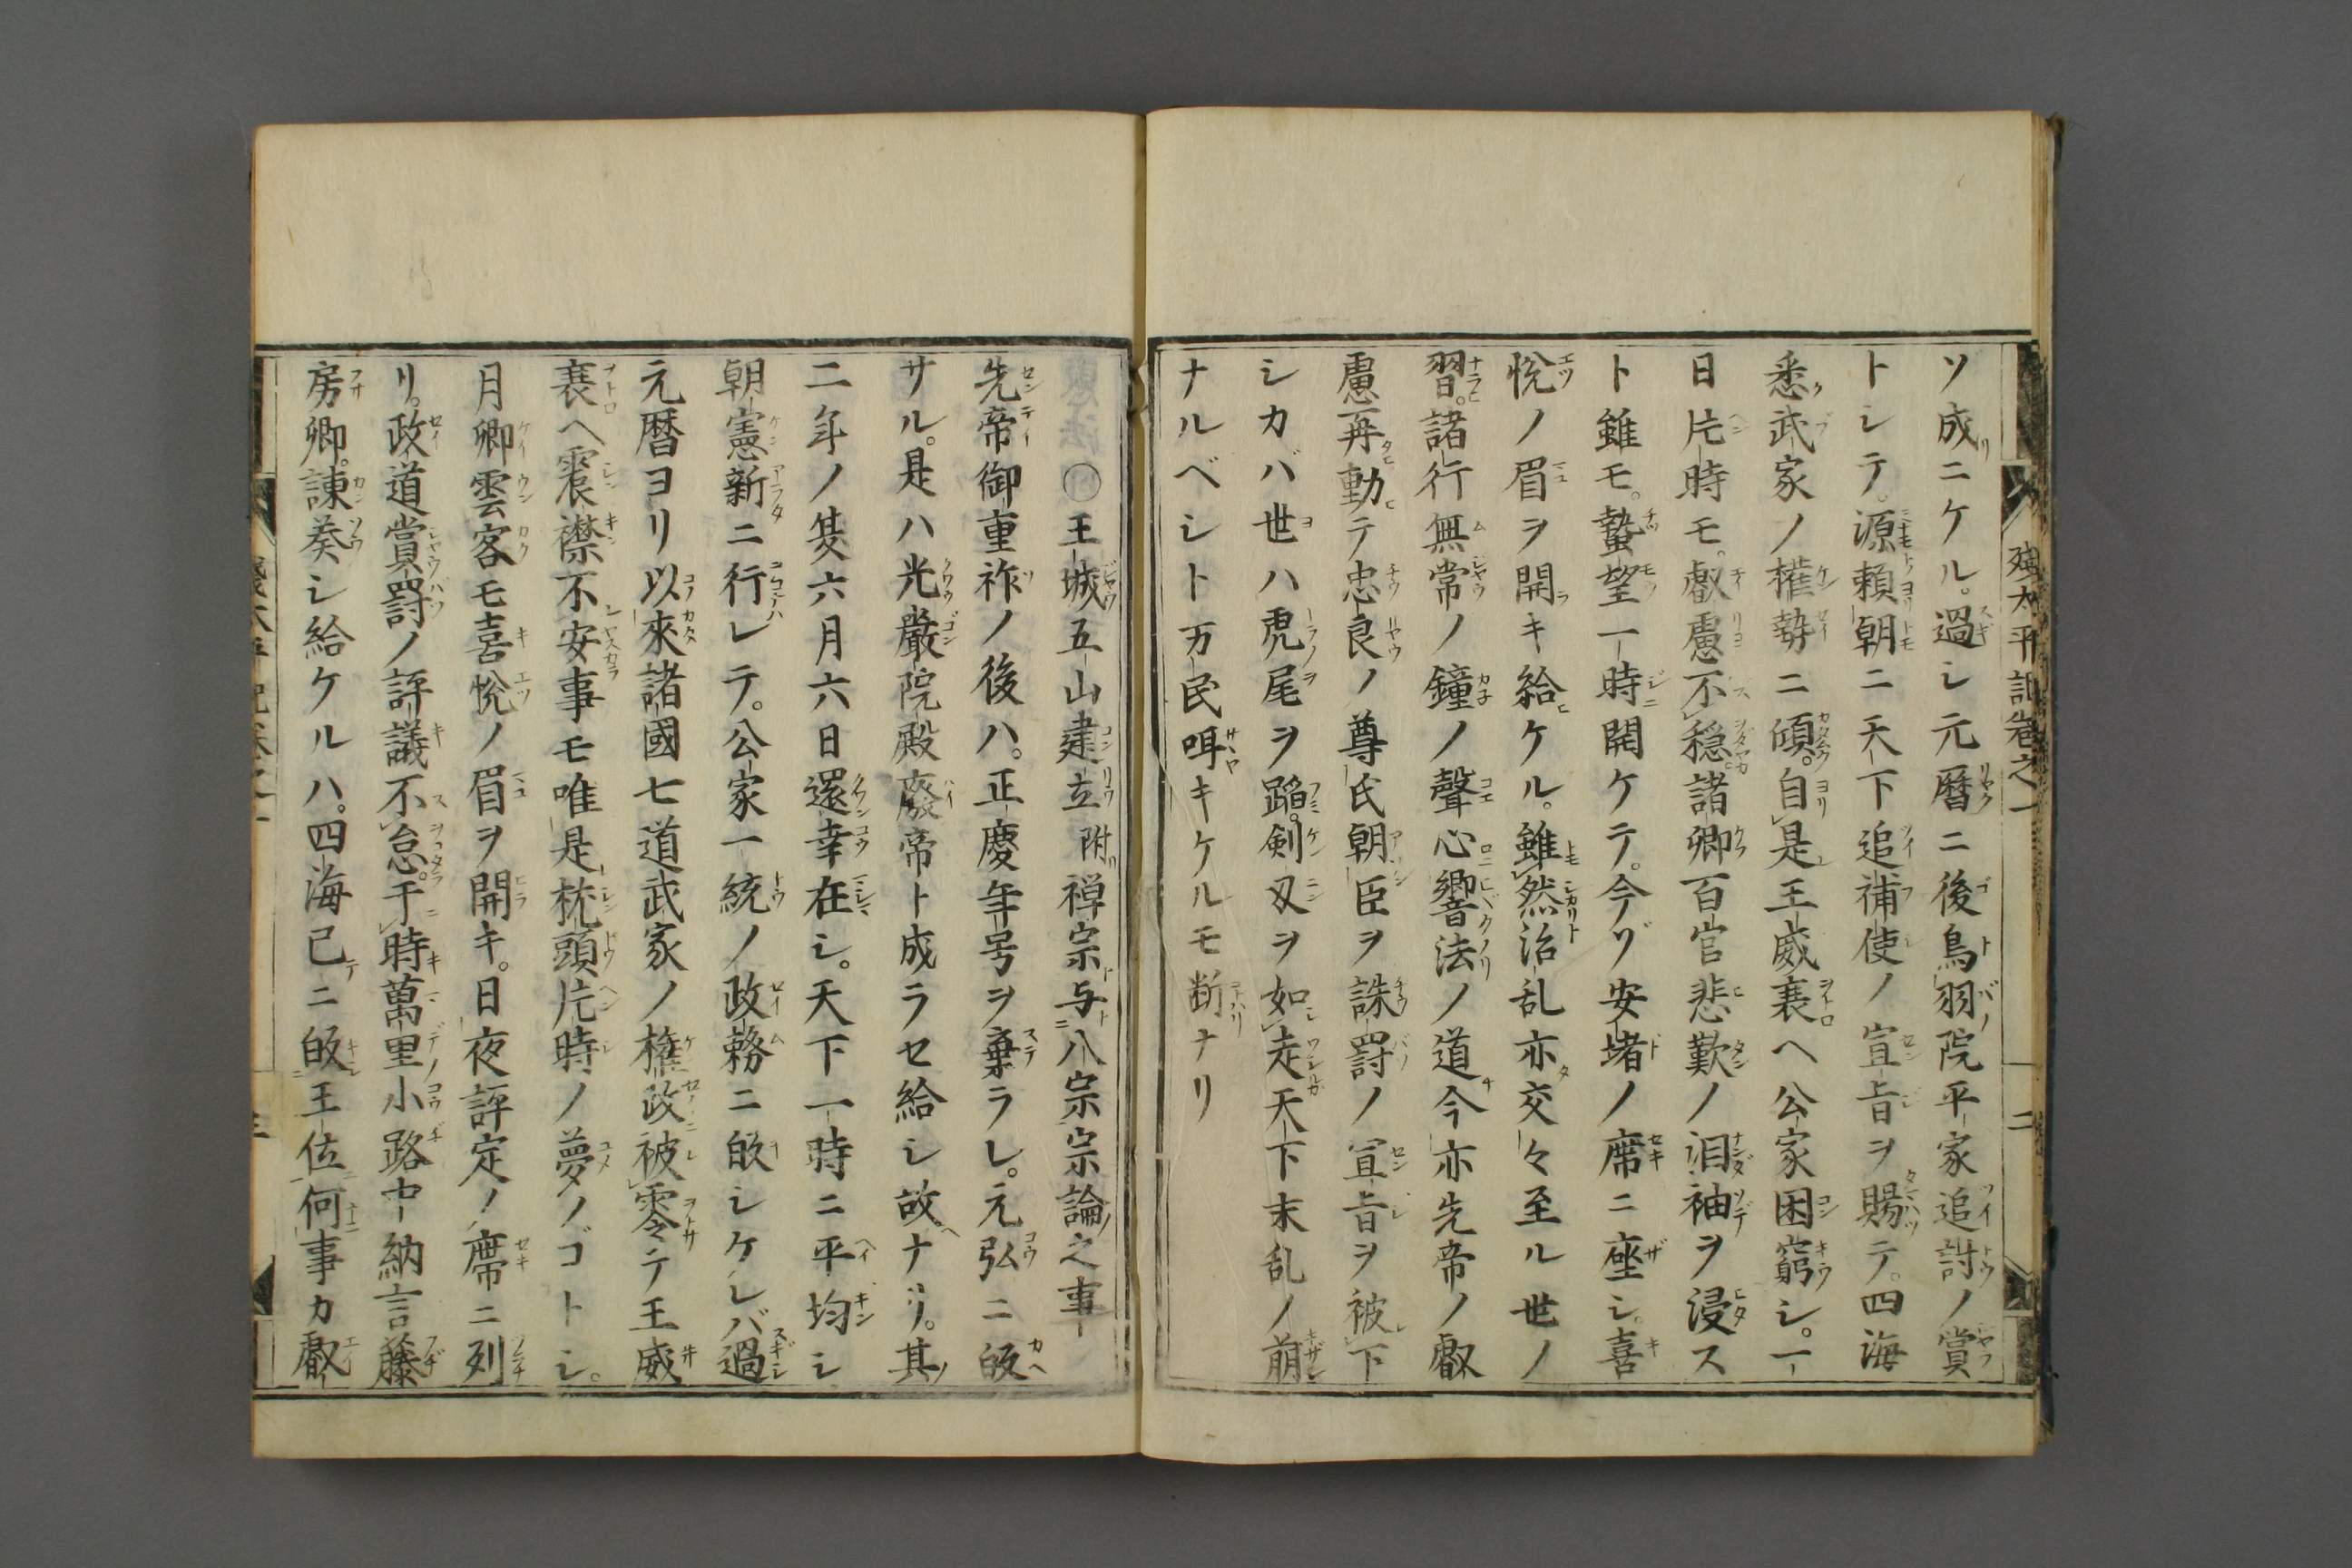 ソ成ニケル。過シ元暦ニ後鳥羽院平家追討ノ賞
トシテ。源頼朝ニ天下追補使ノ宣旨ヲ賜テ。四海
悉武家ノ権勢ニ傾。自是王威衰ヘ公家困窮シ。一
日片時モ。叡慮不穏。諸卿百官悲歎ノ泪袖ヲ浸ス
ト雖モ。蟄望一時開ケテ。今ゾ安堵ノ席ニ座シ。喜
悦ノ眉ヲ開キ給ケル。雖然治乱亦交々至ル世ノ
習。諸行無常ノ鐘ノ聲心響法ノ道今亦先帝ノ叡
慮再動テ忠良ノ尊氏朝臣ヲ誅罸ノ宣旨ヲ被下
シカバ世ハ虎尾ヲ蹈。剣刄ヲ如走天下末乱ノ萠
ナルベシト万民咡キケルモ断ナリ
残太平記巻之一
二
〇王城五山建立附禅宗与八宗宗論之事
先帝御重祚ノ後ハ。正慶年号ヲ棄ラレ。元弘ニ皈
サル。是ハ光厳院殿廢帝ト成ラセ給シ故ナリ。其
二年ノ夏六月六日還幸在シ。天下一時ニ平均シ
朝憲新ニ行レテ。公家一統ノ政務ニ皈シケレバ過
元暦ヨリ以來諸國七道武家ノ権政被零テ王威
衰ヘ震襟不安事モ唯是枕頭片時ノ夢ノゴトシ。
月卿雲客モ喜悦ノ眉ヲ開キ。日夜評定ノ席ニ列
リ。政道賞罸ノ評議不怠。于時萬里小路中納言藤
房卿。諌奏シ給ケルハ。四海已ニ皈王位何事カ叡